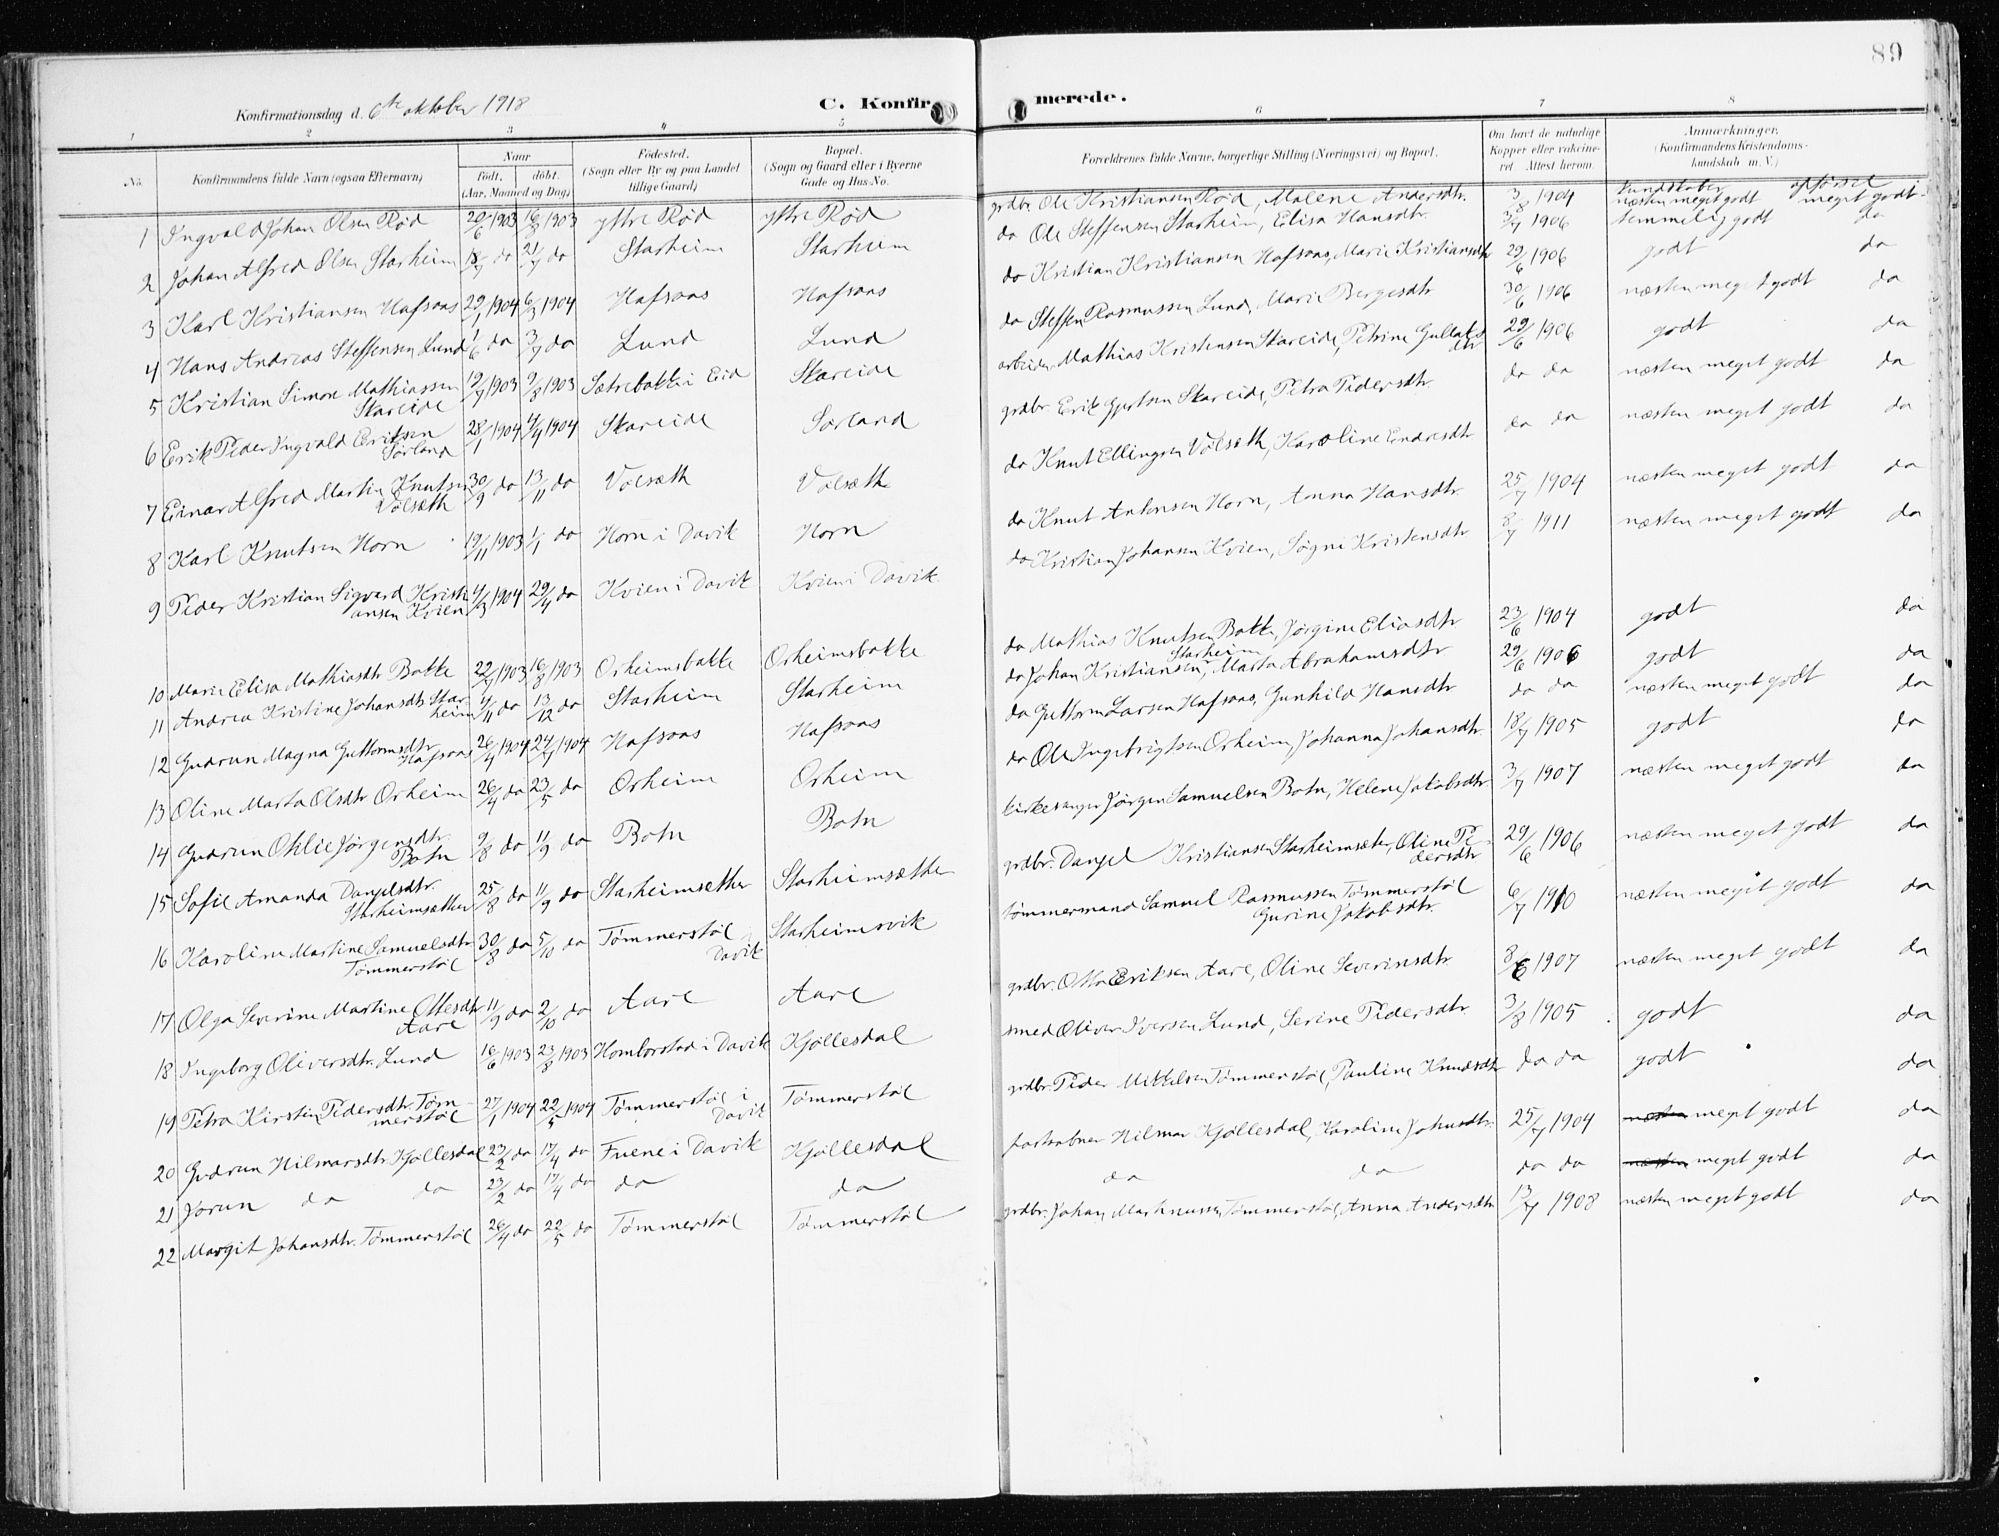 89
Konfirmationsdag d. 6te oktober 1918
C. Konfirmerede.
1 2 3 4 5 6 7 8
No. Konfirmandens fulde Navn (ogsaa Efternavn) Naar født. døbt. (Aar, Maaned og Dag.) Fødested. (Sogn eller By og paa Landet tillige Gaard) Bopæl. (Sogn og Gaard eller i Byerne Gade og Hus-No. Forældrenes fulde Navne, borgerlige Stilling (Næringsvei) og Bopæl. Om havt de naturlige Kopper eller vaccineret Attest herom. Anmærkninger. (Konfirmandens Kristendomskundskab m. V.)
kundskaber opførsel
1 Ingvald Johan Olsen Rød 20/6 1903 16/8 1903 ytre Rød ytre Rød grdbr. Ole Kristiansen Rød, Malene Andersdtr. 3/8 1904 næsten meget godt meget godt
2 Johan Alfred Olsen Starheim 18/7 do 21/7 do Starheim Starheim do Ole Steffensen Starheim, Elisa Hansdtr. 3/7 1906 temmelig godt do
3 Karl Kristiansen Hafsaas 29/1 1904 6/3 1904 Hafsaas Hafsaas do Kristian Kristiansen Hafsaas, Marie Kristiansdtr 29/6 1906 godt do
4 Hans Andreas Steffensen Lund 1/6 do 3/7 do Lund Lund do Steffen Rasmussen Lund, Marie Bergesdtr 30/6 1906 næsten meget godt do
5 Kristian Simon Mathiassen Skareide 19/7 1903 9/8 1903 Sætrebakke i Eid Skareide arbeider Mathias Kristensen Skareide, Petrine Gullaksdtr 29/6 1906 godt do
6 Erik Peder Ingvald Eriksen Sørland 28/1 1904 4/4 1904 Skareide Sørland grdbr. Erik Gjertsen Skareide, Petra Pedersdtr. do do næsten meget godt do
7 Einar Alfred Martin Knutsen Volsæth 30/9 do 13/11 do Volsæth Volsæth do Knut Ellingsen Volsæth, Karoline Endresdtr do do næsten meget godt do
8 Karl Knutsen Horn 19/11 1903 1/1 do Horn i Davik Horn do Knut Antonsen Horn, Anna Hansdtr. 25/7 1904 næsten meget godt do
9 Peder Kristian Sigvard Kristiansen Kvien 4/3 1904 29/4 do Kvien i Davik Kvien i Davik do Kristian Johansen Kvien, Søgni Kristensdtr 8/7 1911 næsten meget godt do
10 Marie Elisa Mathiasdtr Bakke 22/7 1903 16/8 1903 Orheimsbakke Orheimsbakke do Mathias Knutsen Bakke, Jørgine Eliasdtr 23/6 1904 godt do
11 Andrea Kristine Johansdtr Starheim 4/11 do 13/12 do Starheim Starheim do Johan Kristiansen Starheim, Marta Abrahamsdtr 29/6 1906 godt do
12 Gudrun Magna Guttormsdtr Hafsaas 26/4 1904 24/4 1904 Hafsaas Hafsaas do Guttorm Larsen Hafsaas, Gunhild Hansdtr do do næsten meget godt do
13 Oline Marta Olsdtr Orheim 26/4 do 23/5 do Orheim Orheim do Ole Ingebrigtsen Orheim, Johanna Johansdtr. 18/7 1905 godt do
14 Gudrun Oklie Jørgensdtr. Botn 9/8 do 11/9 do Botn Botn kirkesanger Jørgen Samuelsen Botn, Helene Jakobsdtr. 3/7 1907 næsten meget godt do
15 Sofie Amanda Danielsdtr. Starheimsæther 25/8 do 11/9 do Starheimsæther Starheimsæther grdbr. Daniel Kristiansen Starheimsæter, Oline Pedersdtr 29/6 1906 næsten meget godt do
16 Karoline Martine Samuelsdtr Tømmerstøl 30/8 do 5/10 do Tømmerstøl Davik Starheimsvik tømmermand Samuel Rasmussen Tømmerstøl Gurine Jakobsdtr. 6/7 1910 næsten meget godt do
17 Olga Severine Martine Ottesdtr Aare 11/9 do 2/10 do Aare Aare grdbr. Otto Eriksen Aare, Oline Severinsdtr. 8/6 1907 næsten meget godt do
18 Ingeborg Oliversdtr. Lund 16/6 1903 23/8 1903 Homborstad i Davik Kjøllesdal smed Oliver Iversen Lund, Serine Pedersdtr. 3/8 1905 godt do
19 Petra Kirstin Pedersdtr. Tømmerstøl 27/1 1904 22/5 1904 Tømmerstøl i Davik Tømmerstøl grdbr. Peder Mikkelsen Tømmerstøl, Pauline Knudsdtr do do godt do
20 Gudrun Hilmarsdtr Kjøllesdal 23/2 do 17/4 do Fuene i Davik Kjøllesdal postaabner Hilmar Kjøllesdal, Karoline Johnsdtr. 25/7 1904 næsten meget godt do
21 Jorun do do 23/2 do 17/4 do do do do do do do næsten meget godt do
22 Margit Johansdtr. Tømmerstøl 26/4 do 22/5 do Tømmerstøl Tømmerstøl grdbr. Johan Markussen Tømmerstøl, Anna Andersdtr 13/7 1908 næsten meget godt do